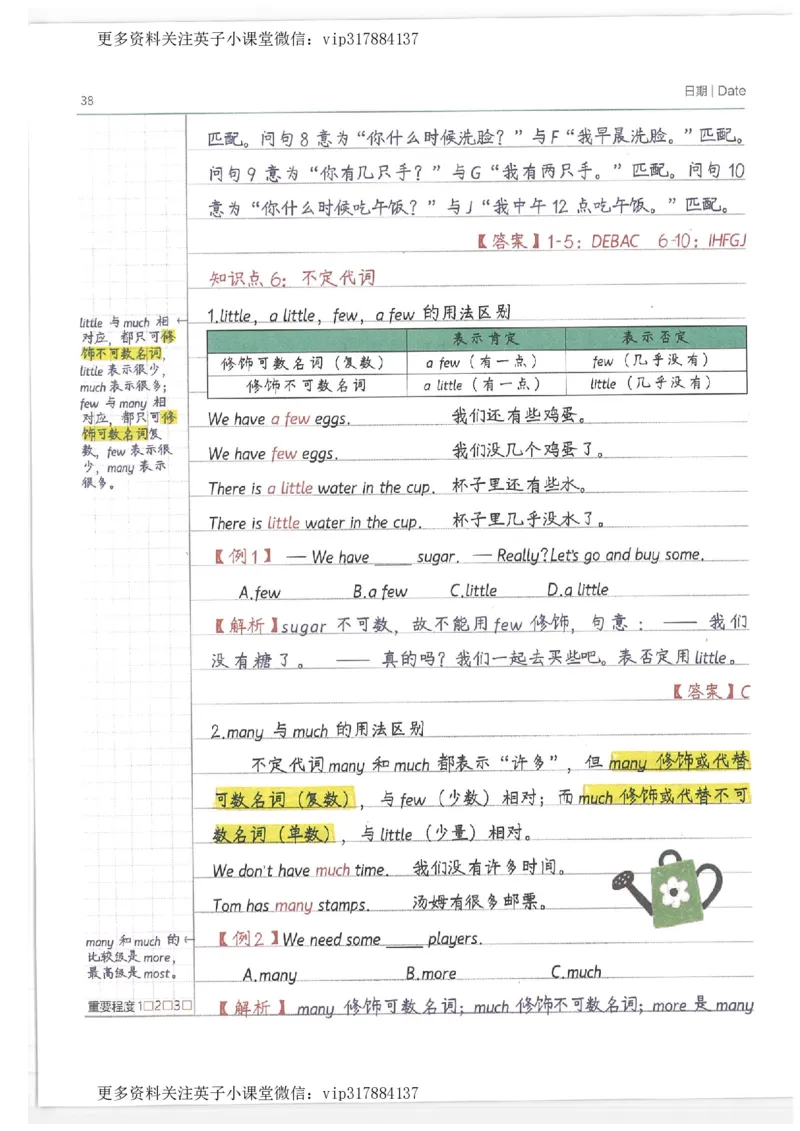 更多资料关注英子小课堂微信：vip317884137
38
日期 | Date
匹配。问句 8 意为“你什么时候洗脸？”与F“我早晨洗脸。”匹配。
问句 9 意为“你有几只手？”与G“我有两只手。”匹配。问句 10
意为“你什么时候吃午饭？”与J“我中午 12 点吃午饭。”匹配。
【答案】1-5：DEBAC 6-10：IHFGJ
知识点 6：不定代词
1.little, a little, few, a few 的用法区别
表示肯定 表示否定
修饰可数名词（复数） a few（有一点） few（几乎没有）
修饰不可数名词 a little（有一点） little（几乎没有）
little 与 much 相
对应，都只可修
饰不可数名词，
little 表示很少，
much 表示很多；
few 与 many 相
对应，都只可修
饰可数名词复
数，few 表示很
少，many 表示
很多。
We have a few eggs. 我们还有些鸡蛋。
We have few eggs. 我们没几个鸡蛋了。
There is a little water in the cup. 杯子里还有些水。
There is little water in the cup. 杯子里几乎没水了。
【例1】 — We have ____ sugar. — Really? Let's go and buy some.
A.few B.a few C.little D.a little
【解析】sugar 不可数，故不能用 few 修饰，句意：—— 我们
没有糖了。 —— 真的吗？我们一起去买些吧。表否定用 little。
【答案】C
2.many 与 much 的用法区别
不定代词 many 和 much 都表示“许多”，但 many 修饰或代替
可数名词（复数），与 few（少数）相对；而 much 修饰或代替不可
数名词（单数），与 little（少量）相对。
We don't have much time. 我们没有许多时间。
Tom has many stamps. 汤姆有很多邮票。
【例2】We need some ____ players.
A.many B.more C.much
many 和 much 的
比较级是 more，
最高级是 most。
重要程度 1□2□3□
【解析】many 修饰可数名词；much 修饰不可数名词；more 是 many
更多资料关注英子小课堂微信：vip317884137